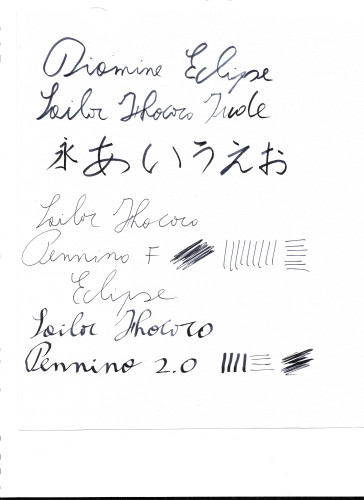 Diamine Eclipse
Sailor Fhococo Fude
永 あいうえお
Sailor Fhococo
Pennino F
Eclipse
Sailor Fhococo
Pennino 2.0